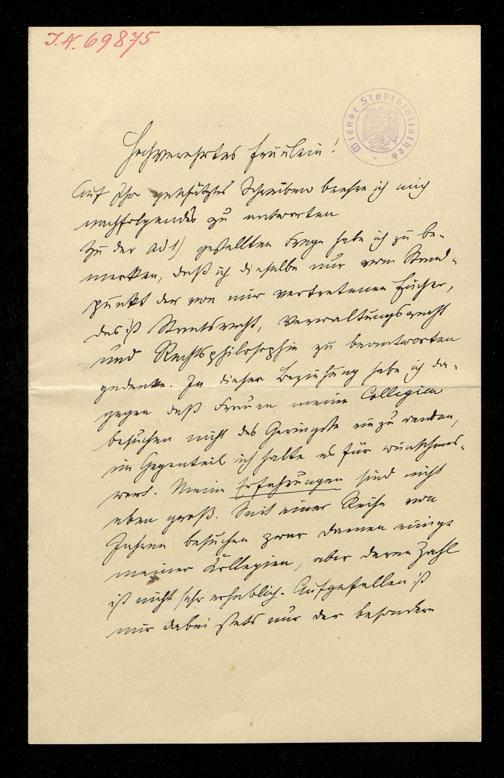 J.N. 69875
Wiener Stadtbibliothek
Hochverehrtes Fräulein!
Auf Ihr geschätztes Schreiben beehre ich mich
nachfolgendes zu antworten
Zu der ad 1) gestellten Frage habe ich zu be-
merken, daß ich dieselbe nur vom Stand-
punkt der von mir vertretenen Fächer,
das ist Staatsrecht, Verwaltungsrecht
und Rechtsphilosophie zu beantworten
gedenke. In dieser Beziehung habe ich da-
gegen daß Frauen meine Collegien
besuchen nicht das Geringste einzuwenden,
im Gegenteil ich halte es für wünschens-
wert. Meine Erfahrungen sind nicht
eben groß. Seit einer Reihe von
Jahren besuchen zwar Damen einige
meiner Kollegien, aber deren Zahl
ist nicht sehr erheblich. Aufgefallen ist
mir dabei stets nur der besondere